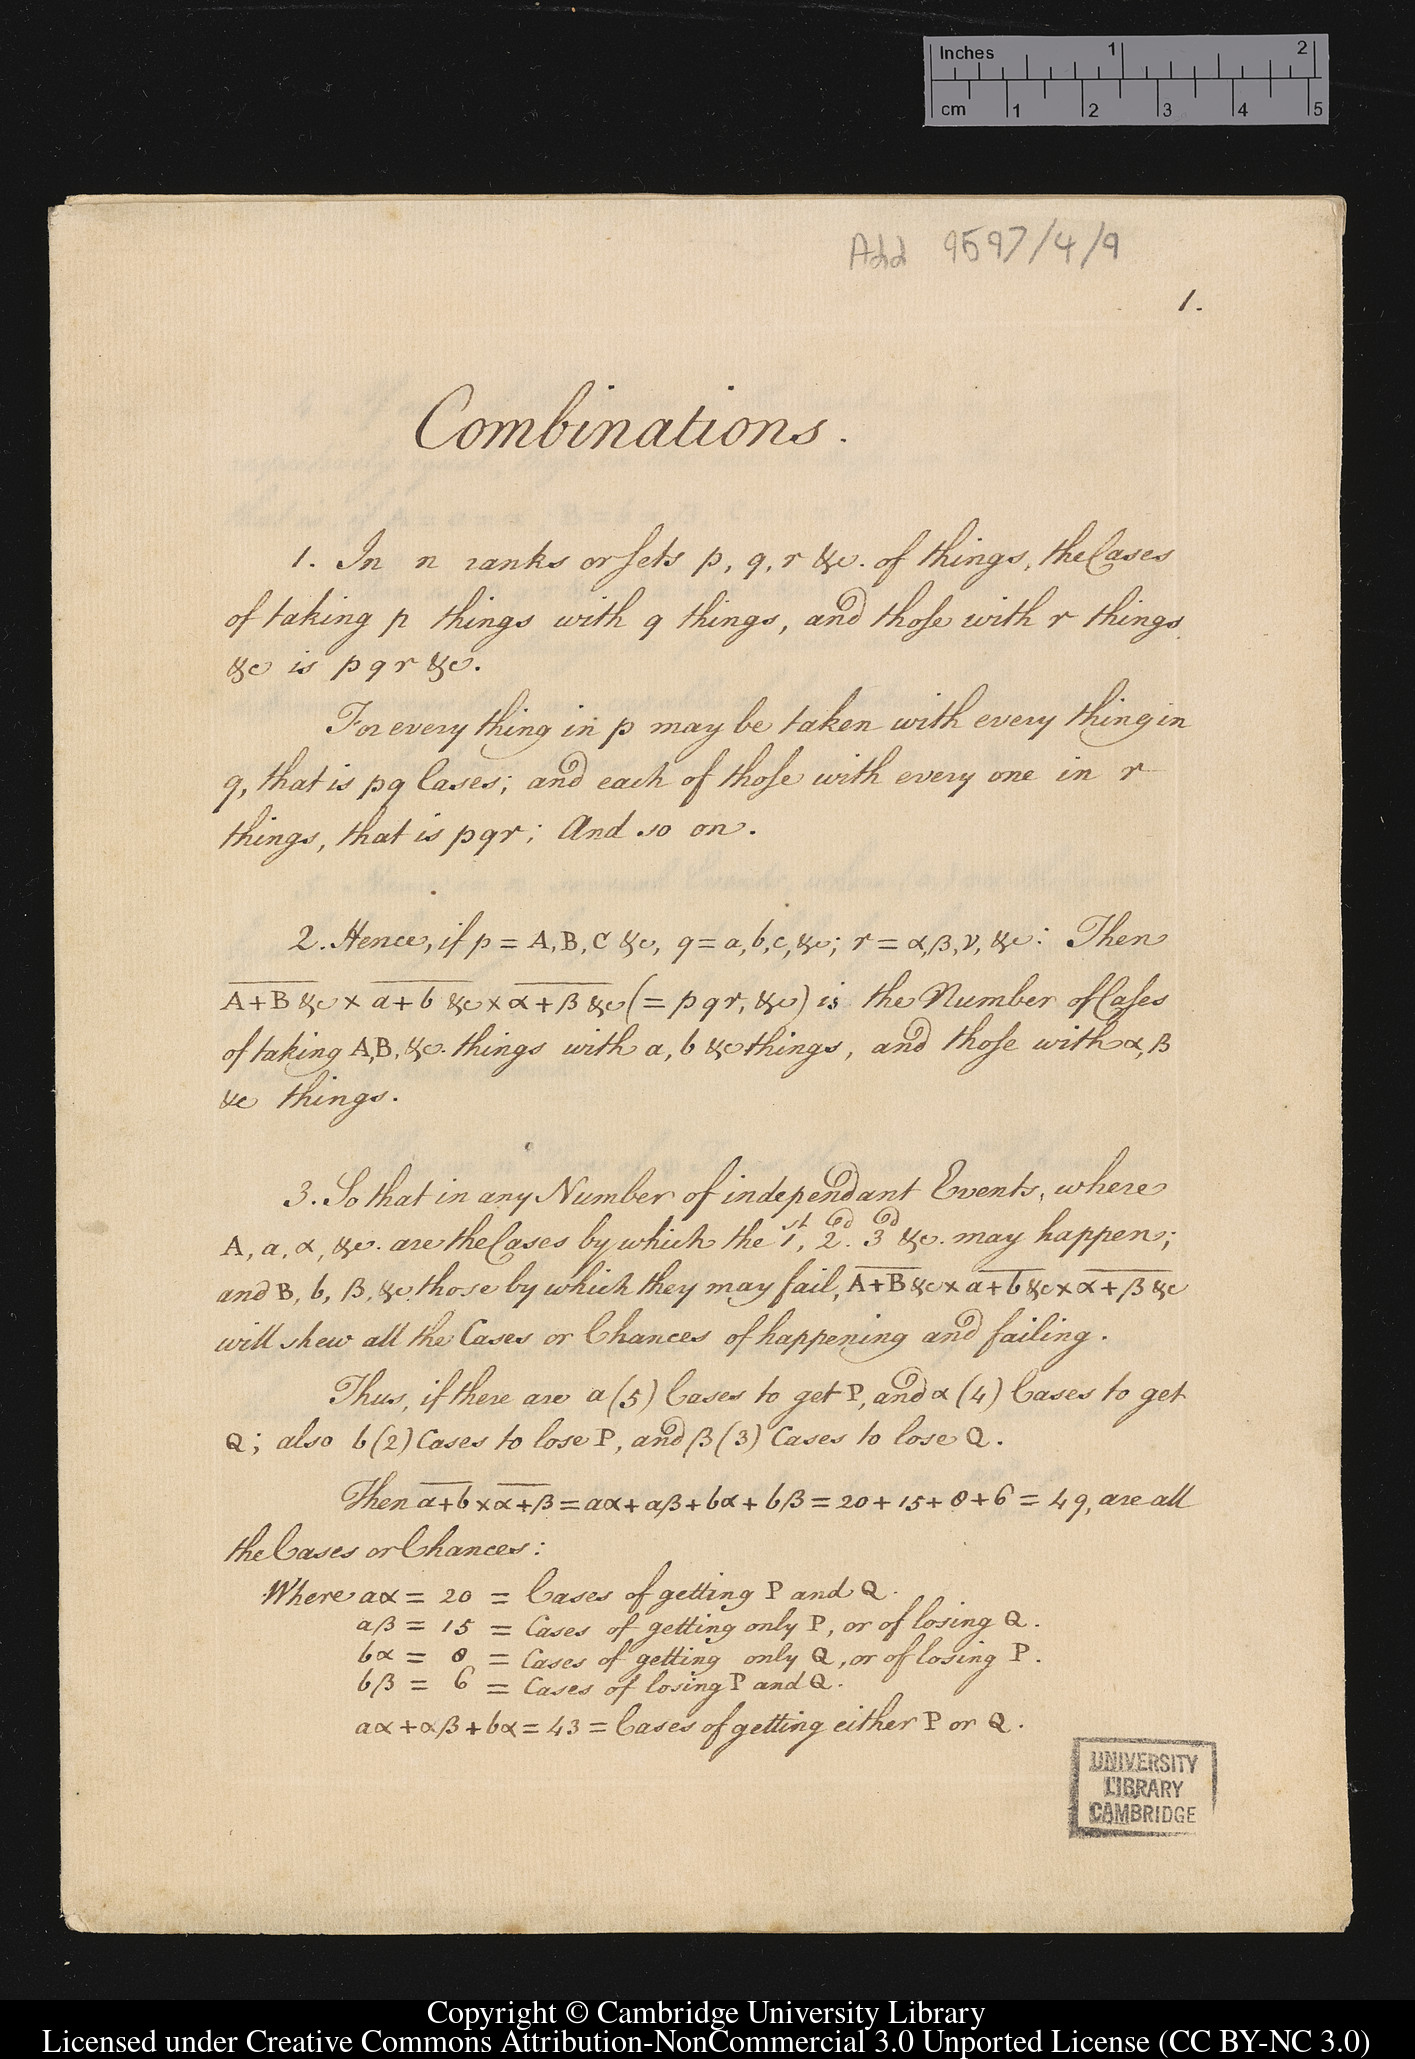 Inches 1 2
cm 1 2 3 4 5
Add 9597/4/9
1.
Combinations.
1. In n ranks or ſets p, q, r &c. of things, the Cases
of taking p things with q things, and thoſe with r things
&c is p q r &c.
For every thing in p may be taken with every thing in
q, that is pq Cases; and each of thoſe with every one in r
things, that is pqr; And so on.
2. Hence, if p = A, B, C &c, q = a, b, c, &c; r = α, β, ν, &c: Then
A+B &c × a+b &c × α+β &c (= pqr, &c) is the Number of Caſes
of taking A, B, &c. things with a, b &c things, and thoſe with α, β
&c things.
3. So that in any Number of independant Events, where
A, a, α, &c. are the Cases by which the 1st, 2d. 3d &c. may happen;
and B, b, β, &c. those by which they may fail, A+B &c × a+b &c × α+β &c
will shew all the Cases or Chances of happening and failing.
Thus, if there are a (5) Cases to get P, and α (4) Cases to get
Q; also b (2) Cases to lose P, and β (3) Cases to lose Q.
Then a+b × α+β = aα + aβ + bα + bβ = 20 + 15 + 8 + 6 = 49, are all
the Cases or Chances:
Where aα = 20 = Cases of getting P and Q.
aβ = 15 = Cases of getting only P, or of losing Q.
bα = 8 = Cases of getting only Q, or of losing P.
bβ = 6 = Cases of losing P and Q.
aα + αβ + bα = 43 = Cases of getting either P or Q.
UNIVERSITY
LIBRARY
CAMBRIDGE
Copyright © Cambridge University Library
Licensed under Creative Commons Attribution-NonCommercial 3.0 Unported License (CC BY-NC 3.0)